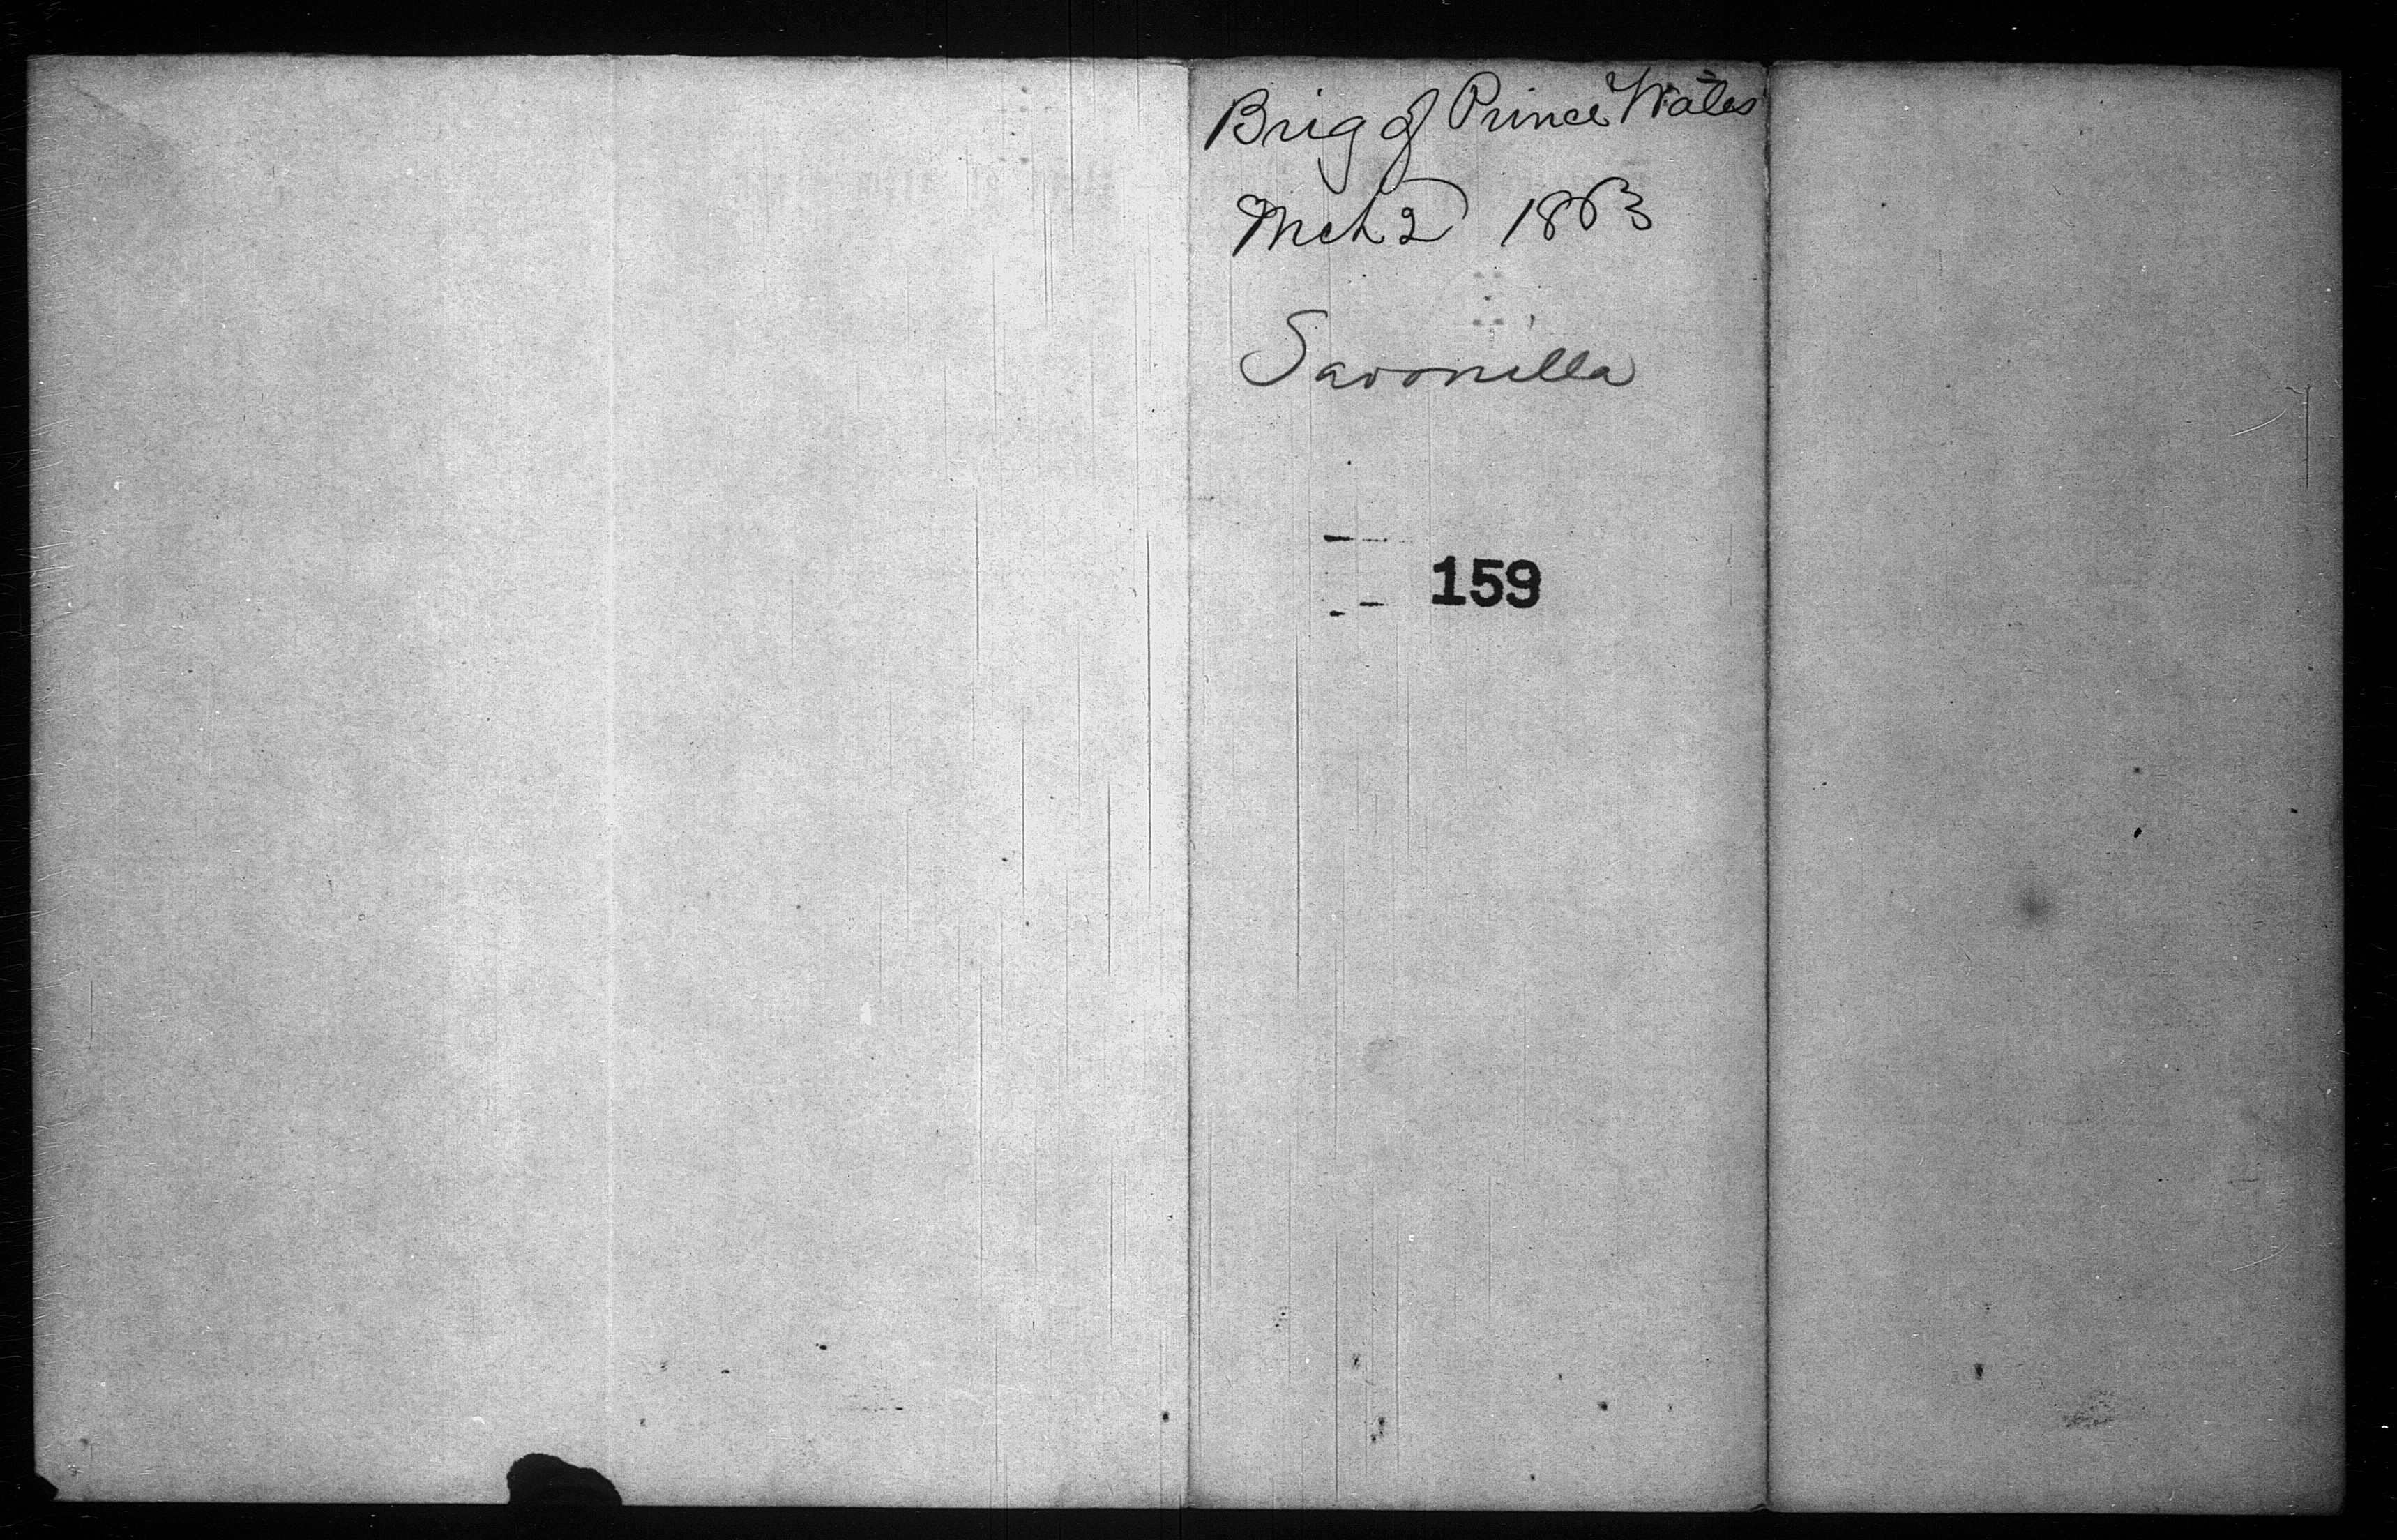 Brig of Prince Wales
Mch 2 1863
Savonilla
159